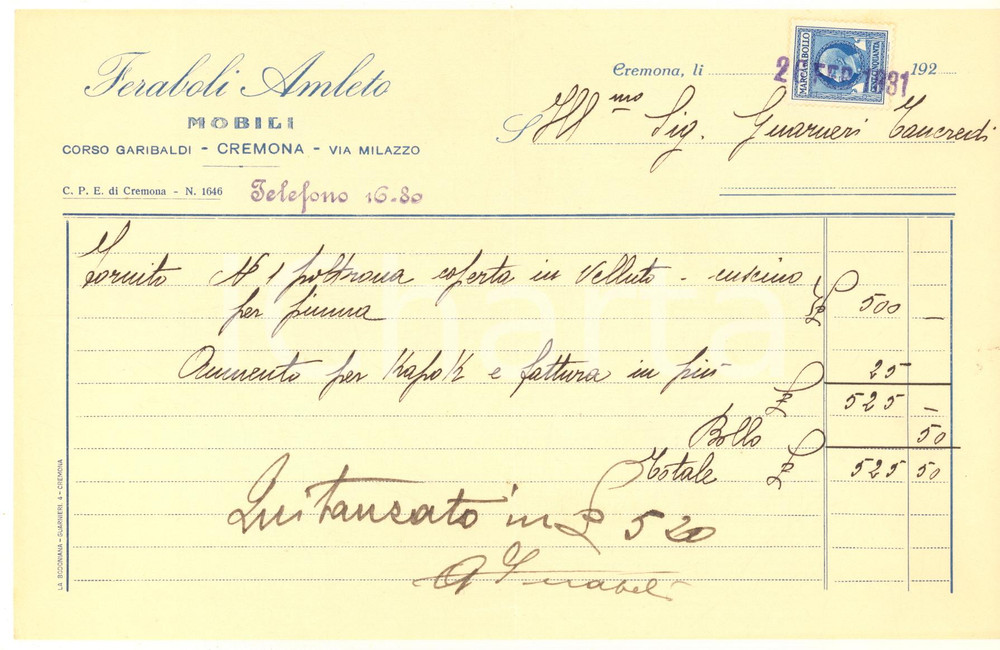 Feraboli Amleto
MOBILI
CORSO GARIBALDI - CREMONA - VIA MILAZZO
C. P. E. di Cremona - N. 1646
Telefono 16-80
Cremona, li 192
FEB 1931
MARCA DA BOLLO
Ill mo Sig. Guarneri Tancredi
Fornito N 1 poltrona coperta in Velluto - cuscino
per piuma £ 500 —
Aumento per Kapok e fattura in più 25
£ 525 —
Bollo 50
Totale £ 525 50
Quitanzato in £ 520
A Feraboli
LA BODONIANA - GUARNIERI, 4 - CREMONA
charta